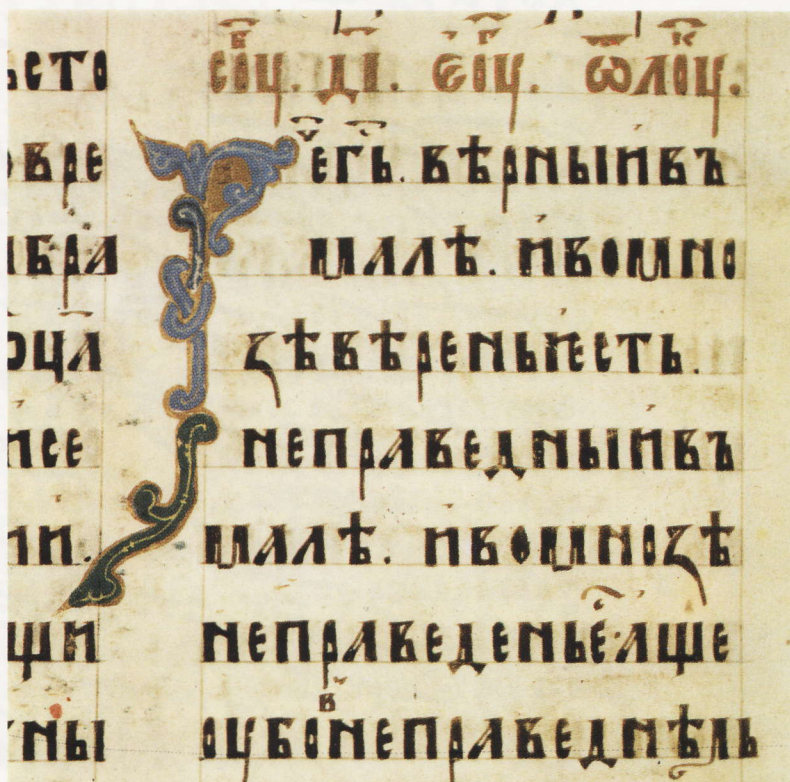 ьсто
овре
ибра
оца
исе
ии.
щи
ны
соуⷠ҇. д҃і. еоуⷢ҇. ѿлоуⷦ҇.
Рⷱ҇е г҃ь. вѣрныивъ
малѣ. ивомно
зѣвѣреньѥсть.
неправедныивъ
малѣ. ивомнозѣ
неправеденье҃·аще
оубоⷡ҇неправеднѣмь